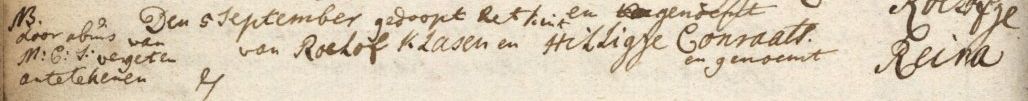 NB.
door abuis van
M: C: S: vergeten
antetekenen
Den 5 September gedoopt het kint
van Roelof Klasen en Hilligje Conraats.
en genoemt
Reina